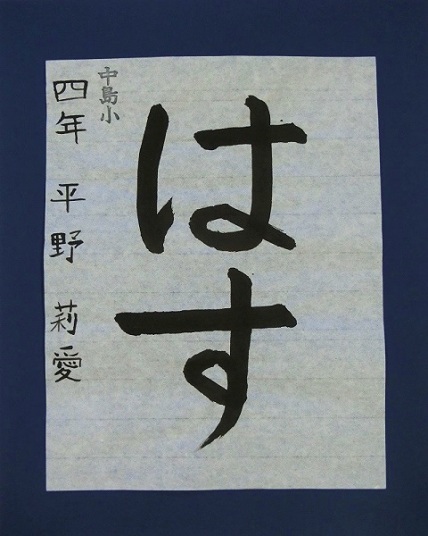 はす
中島小
四年 平野 莉愛